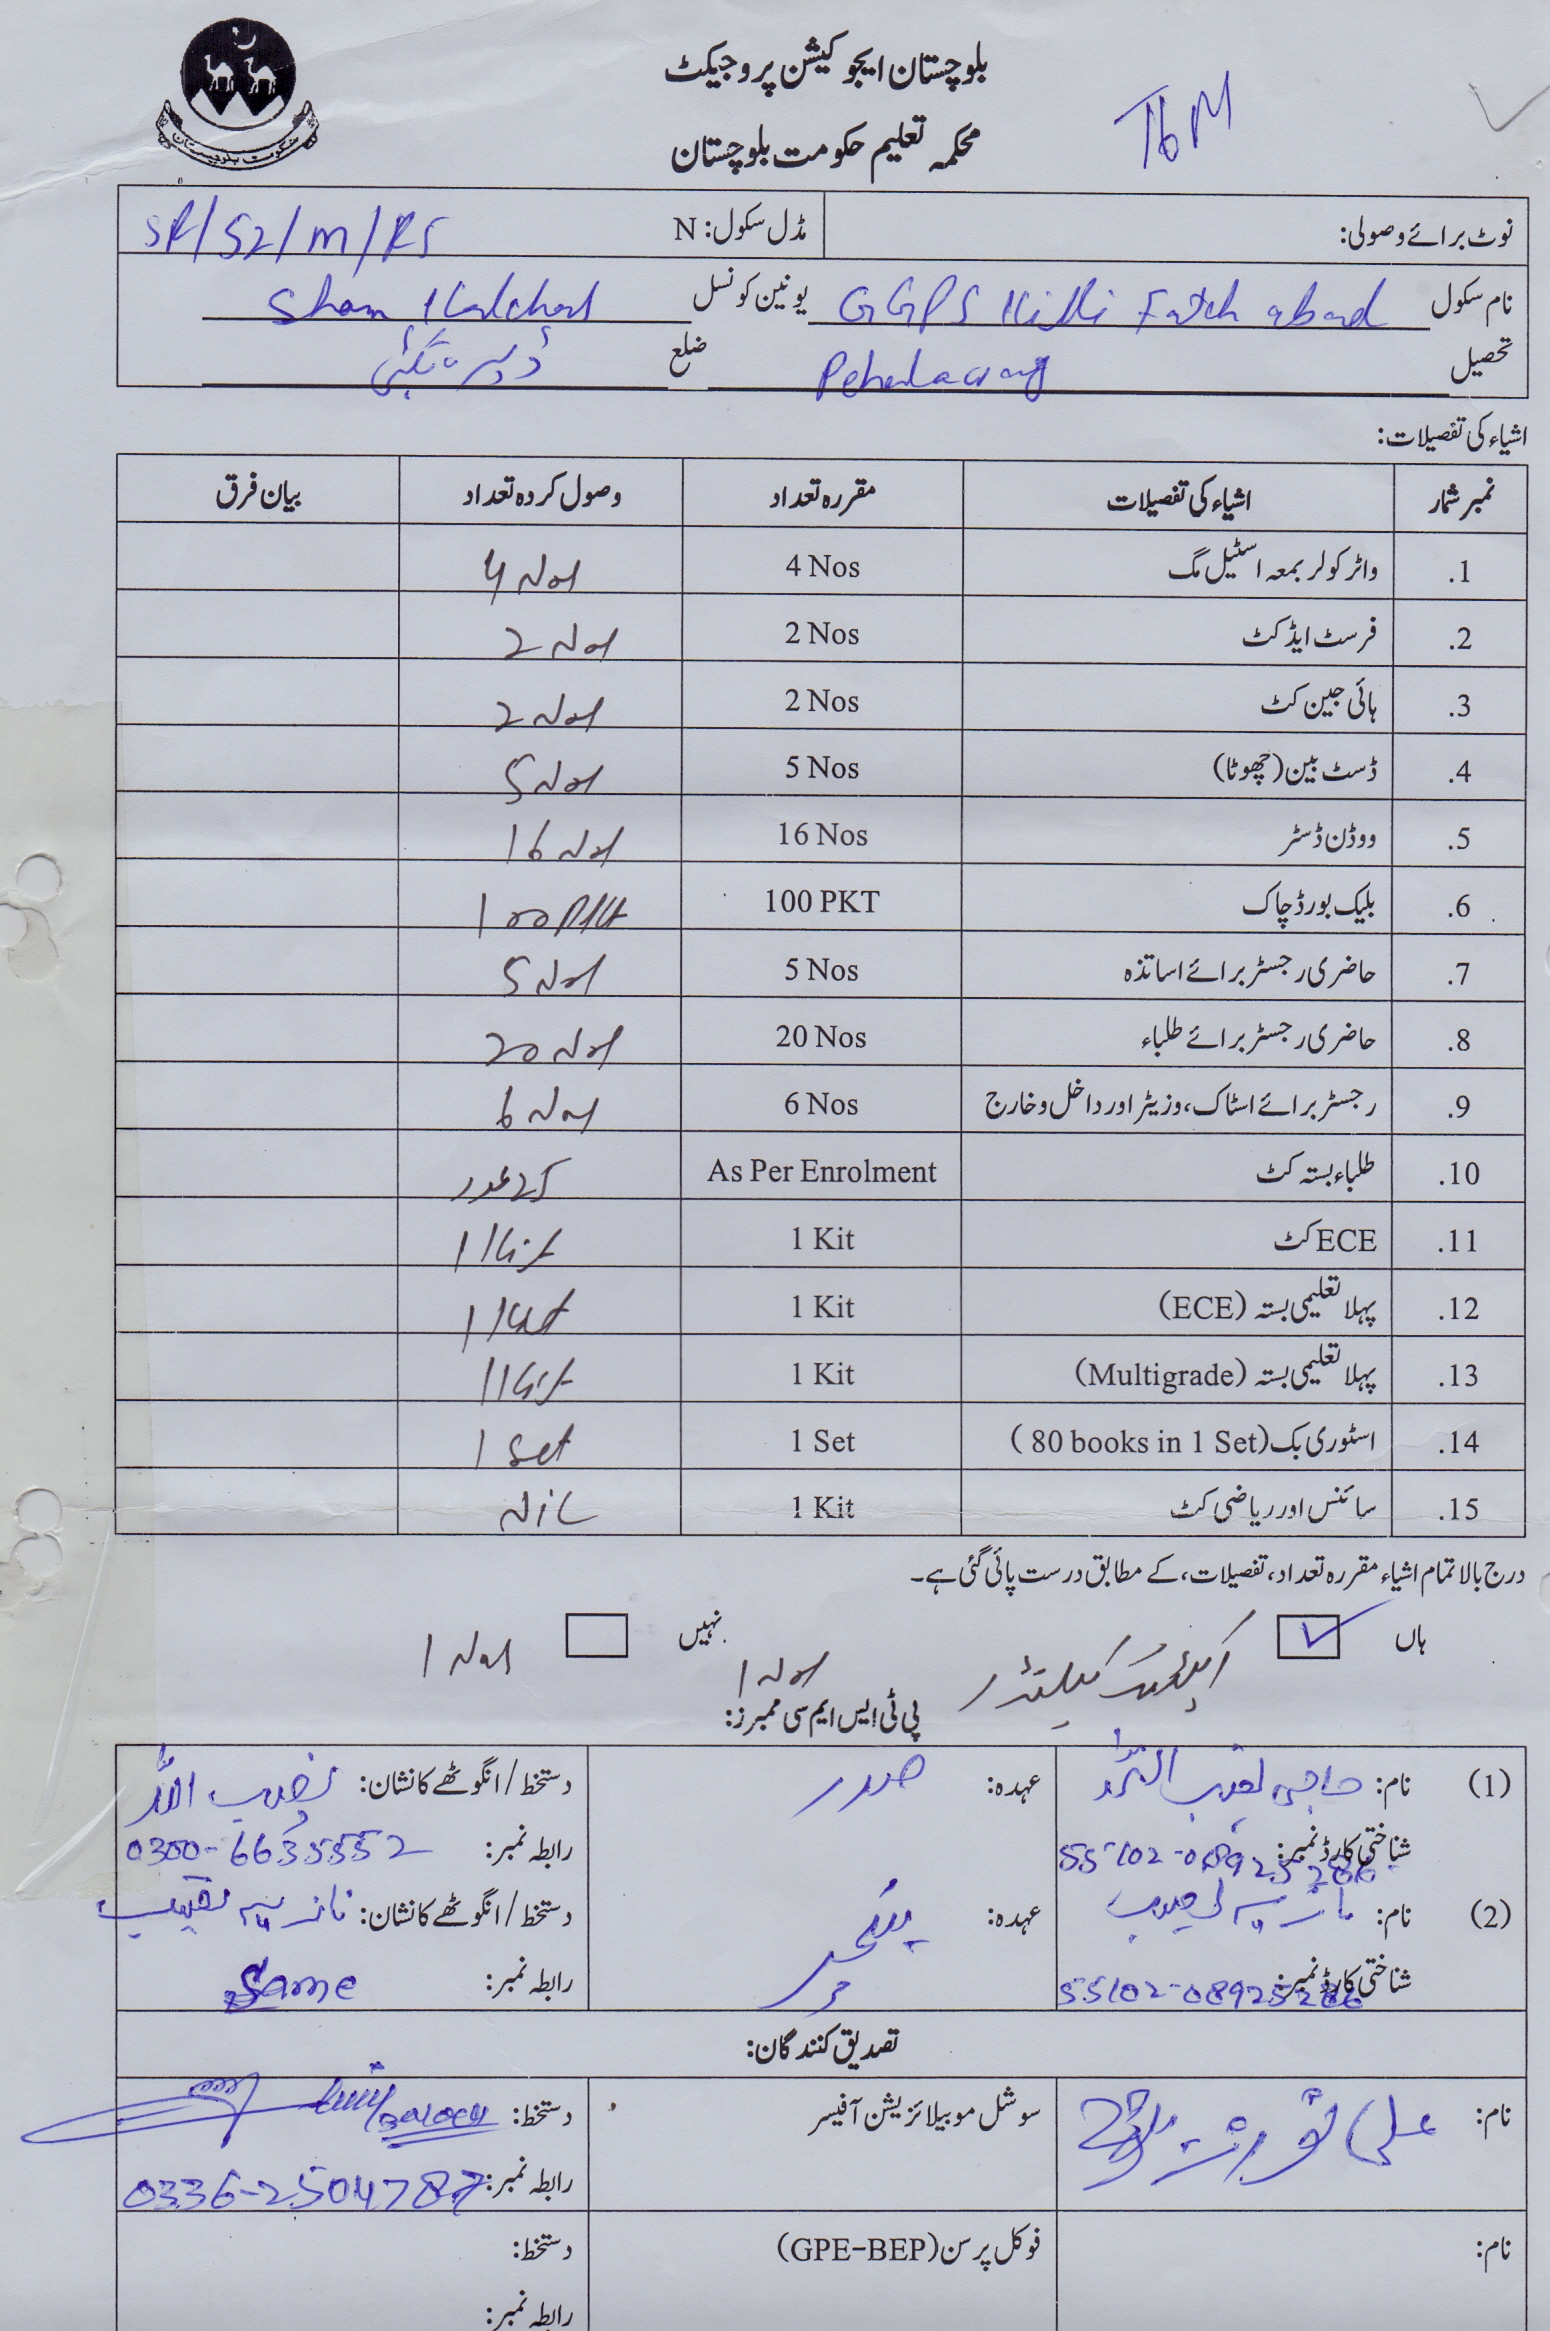 بلوچستان ایجوکیشن پروجیکٹ
محکمہ تعلیم حکومت بلوچستان
حکومت بلوچستان
نوٹ برائے وصولی: مڈل سکول: N SR/52/M/RS
نام سکول GGPS Killi Fateh abad یونین کونسل Sham
تحصیل ضلع ڈیرہ بگٹی
اشیاء کی تفصیلات:
نمبر شمار اشیاء کی تفصیلات مقررہ تعداد وصول کردہ تعداد بیان فرق
1. واٹر کولر بمعہ اسٹیل مگ 4 Nos 4 Nos
2. فرسٹ ایڈ کٹ 2 Nos 2 Nos
3. ہائی جین کٹ 2 Nos 2 Nos
4. ڈسٹ بین (چھوٹا) 5 Nos 5 Nos
5. ووڈن ڈسٹر 16 Nos 16 Nos
6. بلیک بورڈ چاک 100 PKT 100 PKt
7. حاضری رجسٹر برائے اساتذہ 5 Nos 5 Nos
8. حاضری رجسٹر برائے طلباء 20 Nos 20 Nos
9. رجسٹر برائے اسٹاک، وزیٹر اور داخل و خارج 6 Nos 6 Nos
10. طلباء بستہ کٹ As Per Enrolment عدد
11. ECE کٹ 1 Kit 1 Kit
12. پہلا تعلیمی بستہ (ECE) 1 Kit 1 Kit
13. پہلا تعلیمی بستہ (Multigrade) 1 Kit 1 Kit
14. اسٹوری بک (80 books in 1 Set ) 1 Set 1 Set
15. سائنس اور ریاضی کٹ 1 Kit Nil
درج بالا تمام اشیاء مقررہ تعداد، تفصیلات، کے مطابق درست پائی گئی ہے۔
ہاں نہیں 1 Nos
1 Nos
پی ٹی ایس ایم سی ممبرز:
(1) نام: حاجی عہدہ: صدر دستخط/انگوٹھے کا نشان: نصیب اللہ
شناختی کارڈ نمبر: رابطہ نمبر: 0300-6635552
(2) نام: عہدہ: دستخط/انگوٹھے کا نشان:
شناختی کارڈ نمبر: رابطہ نمبر: Same
تصدیق کنندگان:
نام: علی سوشل موبیلائزیشن آفیسر دستخط: Baloch
رابطہ نمبر: 0336-2504787
نام: فوکل پرسن (GPE-BEP) دستخط:
رابطہ نمبر: